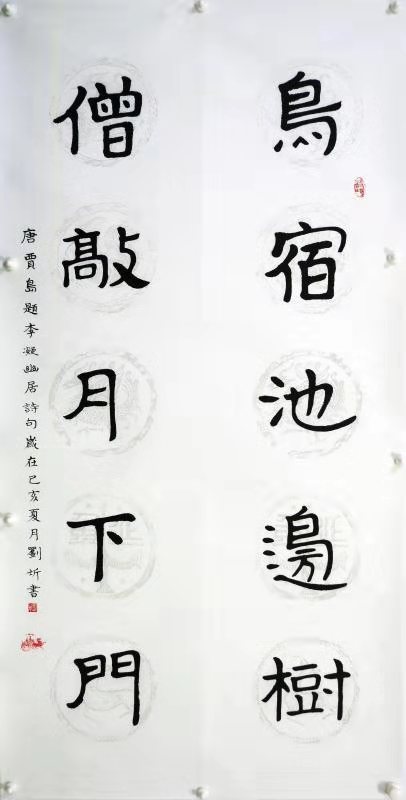 鳥宿池邊樹
僧敲月下門
唐賈島題李凝幽居詩句歲在己亥夏月劉圻書